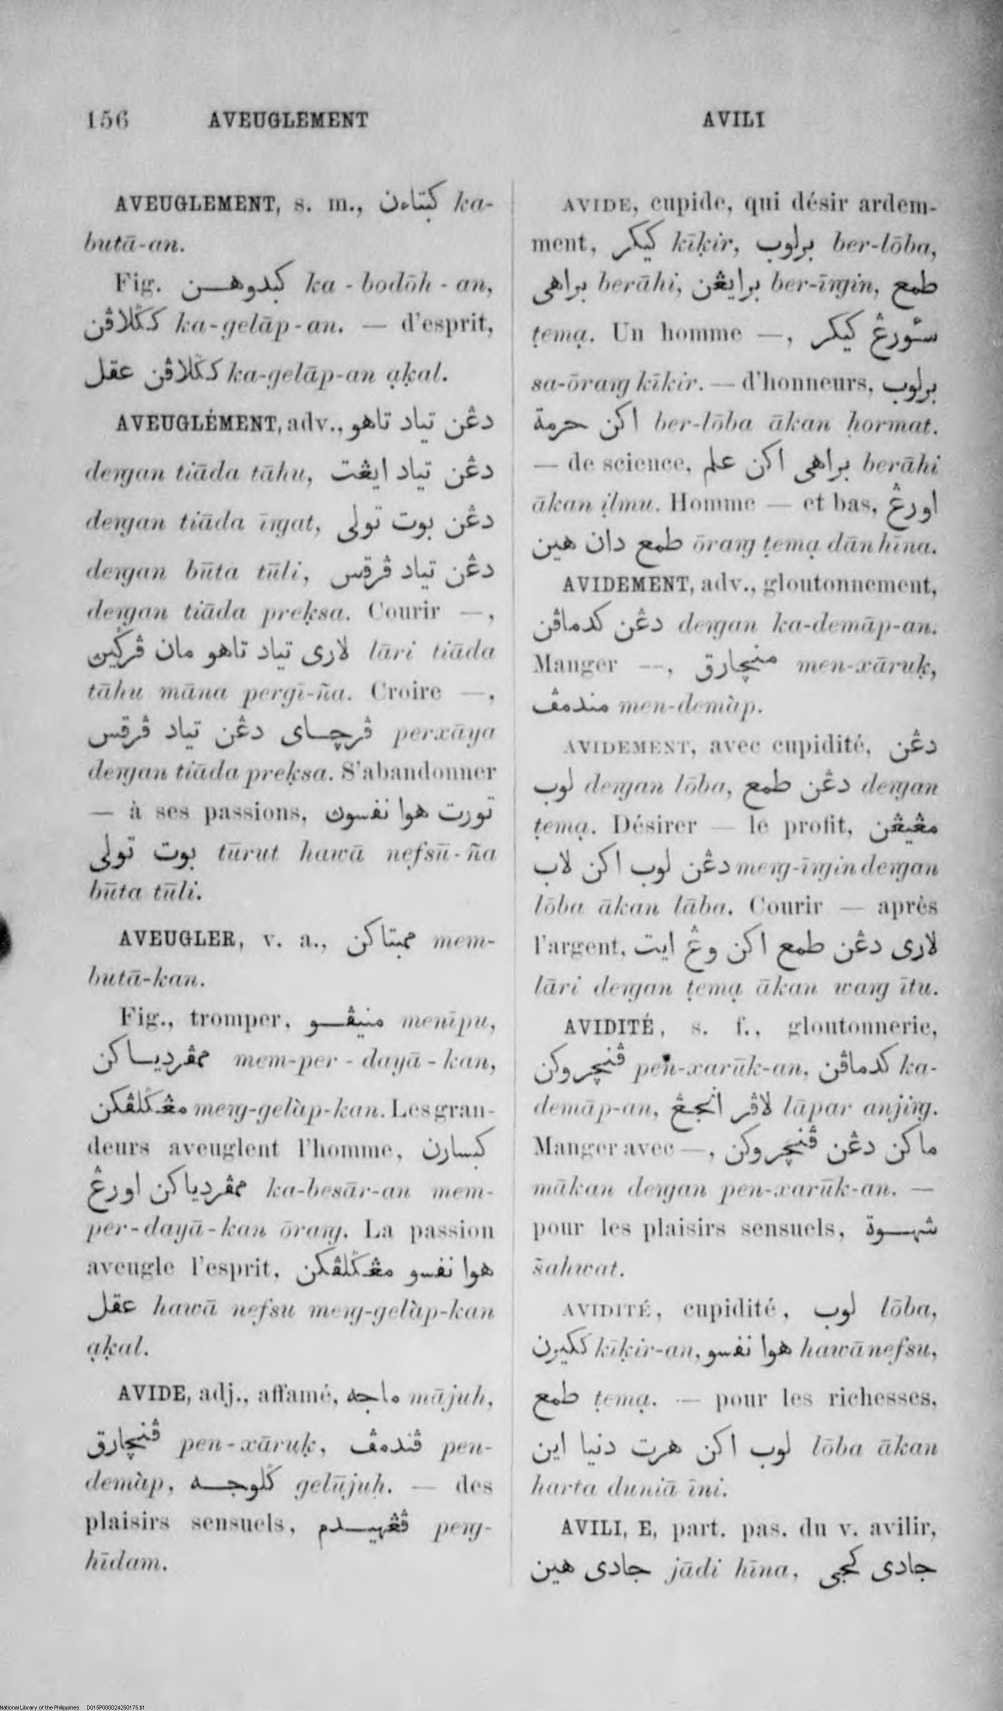 156 AVEUGLEMENT AVILI
AVEUGLEMENT, s. m., كبتاءن ka-
butā-an.
Fig. كبدوهن ka-bodōh-an,
ككلاڤن ka-gelāp-an. — d'esprit,
ككلاڤن عقل ka-gelāp-an ạḳal.
AVEUGLÉMENT, adv., دڠن تياد تاهو
deṅgan tiāda tāhu, دڠن تياد ايڠت
deṅgan tiāda īṅgat, دڠن بوت تولى
deṅgan būta tūli, دڠن تياد ڤرقس
deṅgan tiāda preḳsa. Courir —,
لارى تياد تاهو مان ڤركين lāri tiāda
tāhu māna pergi-ña. Croire —,
ڤرچاى دڠن تياد ڤرقس perxāya
deṅgan tiāda preḳsa. S'abandonner
— à ses passions, تورت هوا نفسوڽ
بوت تولى tūrut hawā nefsū-ña
būta tūli.
AVEUGLER, v. a., ممبتاكن mem-
butā-kan.
Fig., tromper, منيڤو menīpu,
ممڤردياكن mem-per-dayā-kan,
مڠكلڤكن meṅg-gelàp-kan. Les gran-
deurs aveuglent l'homme, كبسارن
ممڤردياكن اورڠ ka-besār-an mem-
per-dayā-kan ōraṅg. La passion
aveugle l'esprit, هوا نفسو مڠكلڤكن
عقل hawā nefsu meṅg-gelàp-kan
ạḳal.
AVIDE, adj., affamé, ماجه mājuh,
ڤنچارق pen-xāruḳ, ڤندمڤ pen-
demàp, كلوجه gelūjuh. — des
plaisirs sensuels, ڤڠهيدم peṅg-
hīdam.
AVIDE, cupide, qui désir ardem-
ment, كيكر kīḳir, برلوب ber-lōba,
براهى berāhi, برايڠن ber-īṅgin, طمع
ṭemạ. Un homme —, سئورڠ كيكر
sa-ōraṅg kīkir. — d'honneurs, برلوب
اكن حرمة ber-lōba ākan ḥormat.
— de science, براهى اكن علم berāhi
ākan ịlmu. Homme — et bas, اورڠ
طمع دان هين ōraṅg ṭemạ dān hīna.
AVIDEMENT, adv., gloutonnement,
دڠن كدماڤن deṅgan ka-demāp-an.
Manger —, منچارق men-xāruḳ,
مندمڤ men-demàp.
AVIDEMENT, avec cupidité, دڠن
لوب deṅgan lōba, دڠن طمع deṅgan
ṭemạ. Désirer — le profit, مڠيڠن
دڠن لوب اكن لاب meṅg-īṅgin deṅgan
lōba ākan lāba. Courir — après
l'argent, لارى دڠن طمع اكن وڠ ايت
lāri deṅgan ṭemạ ākan waṅg ītu.
AVIDITÉ, s. f., gloutonnerie,
ڤنچروكن pen-xarūk-an, كدماڤن ka-
demāp-an, لاڤر انجڠ lāpar anjiṅg.
Manger avec —, ماكن دڠن ڤنچروكن
mākan deṅgan pen-xarūk-an. —
pour les plaisirs sensuels, شهوة
šahwat.
AVIDITÉ, cupidité, لوب lōba,
ككيرن kīḳir-an, هوا نفسو hawā nefsu,
طمع ṭemạ. — pour les richesses,
لوب اكن هرت دنيا اين lōba ākan
harta duniā īni.
AVILI, E, part. pas. du v. avilir,
جادى هين jādi hīna, جادى كجى
National Library of the Philippines